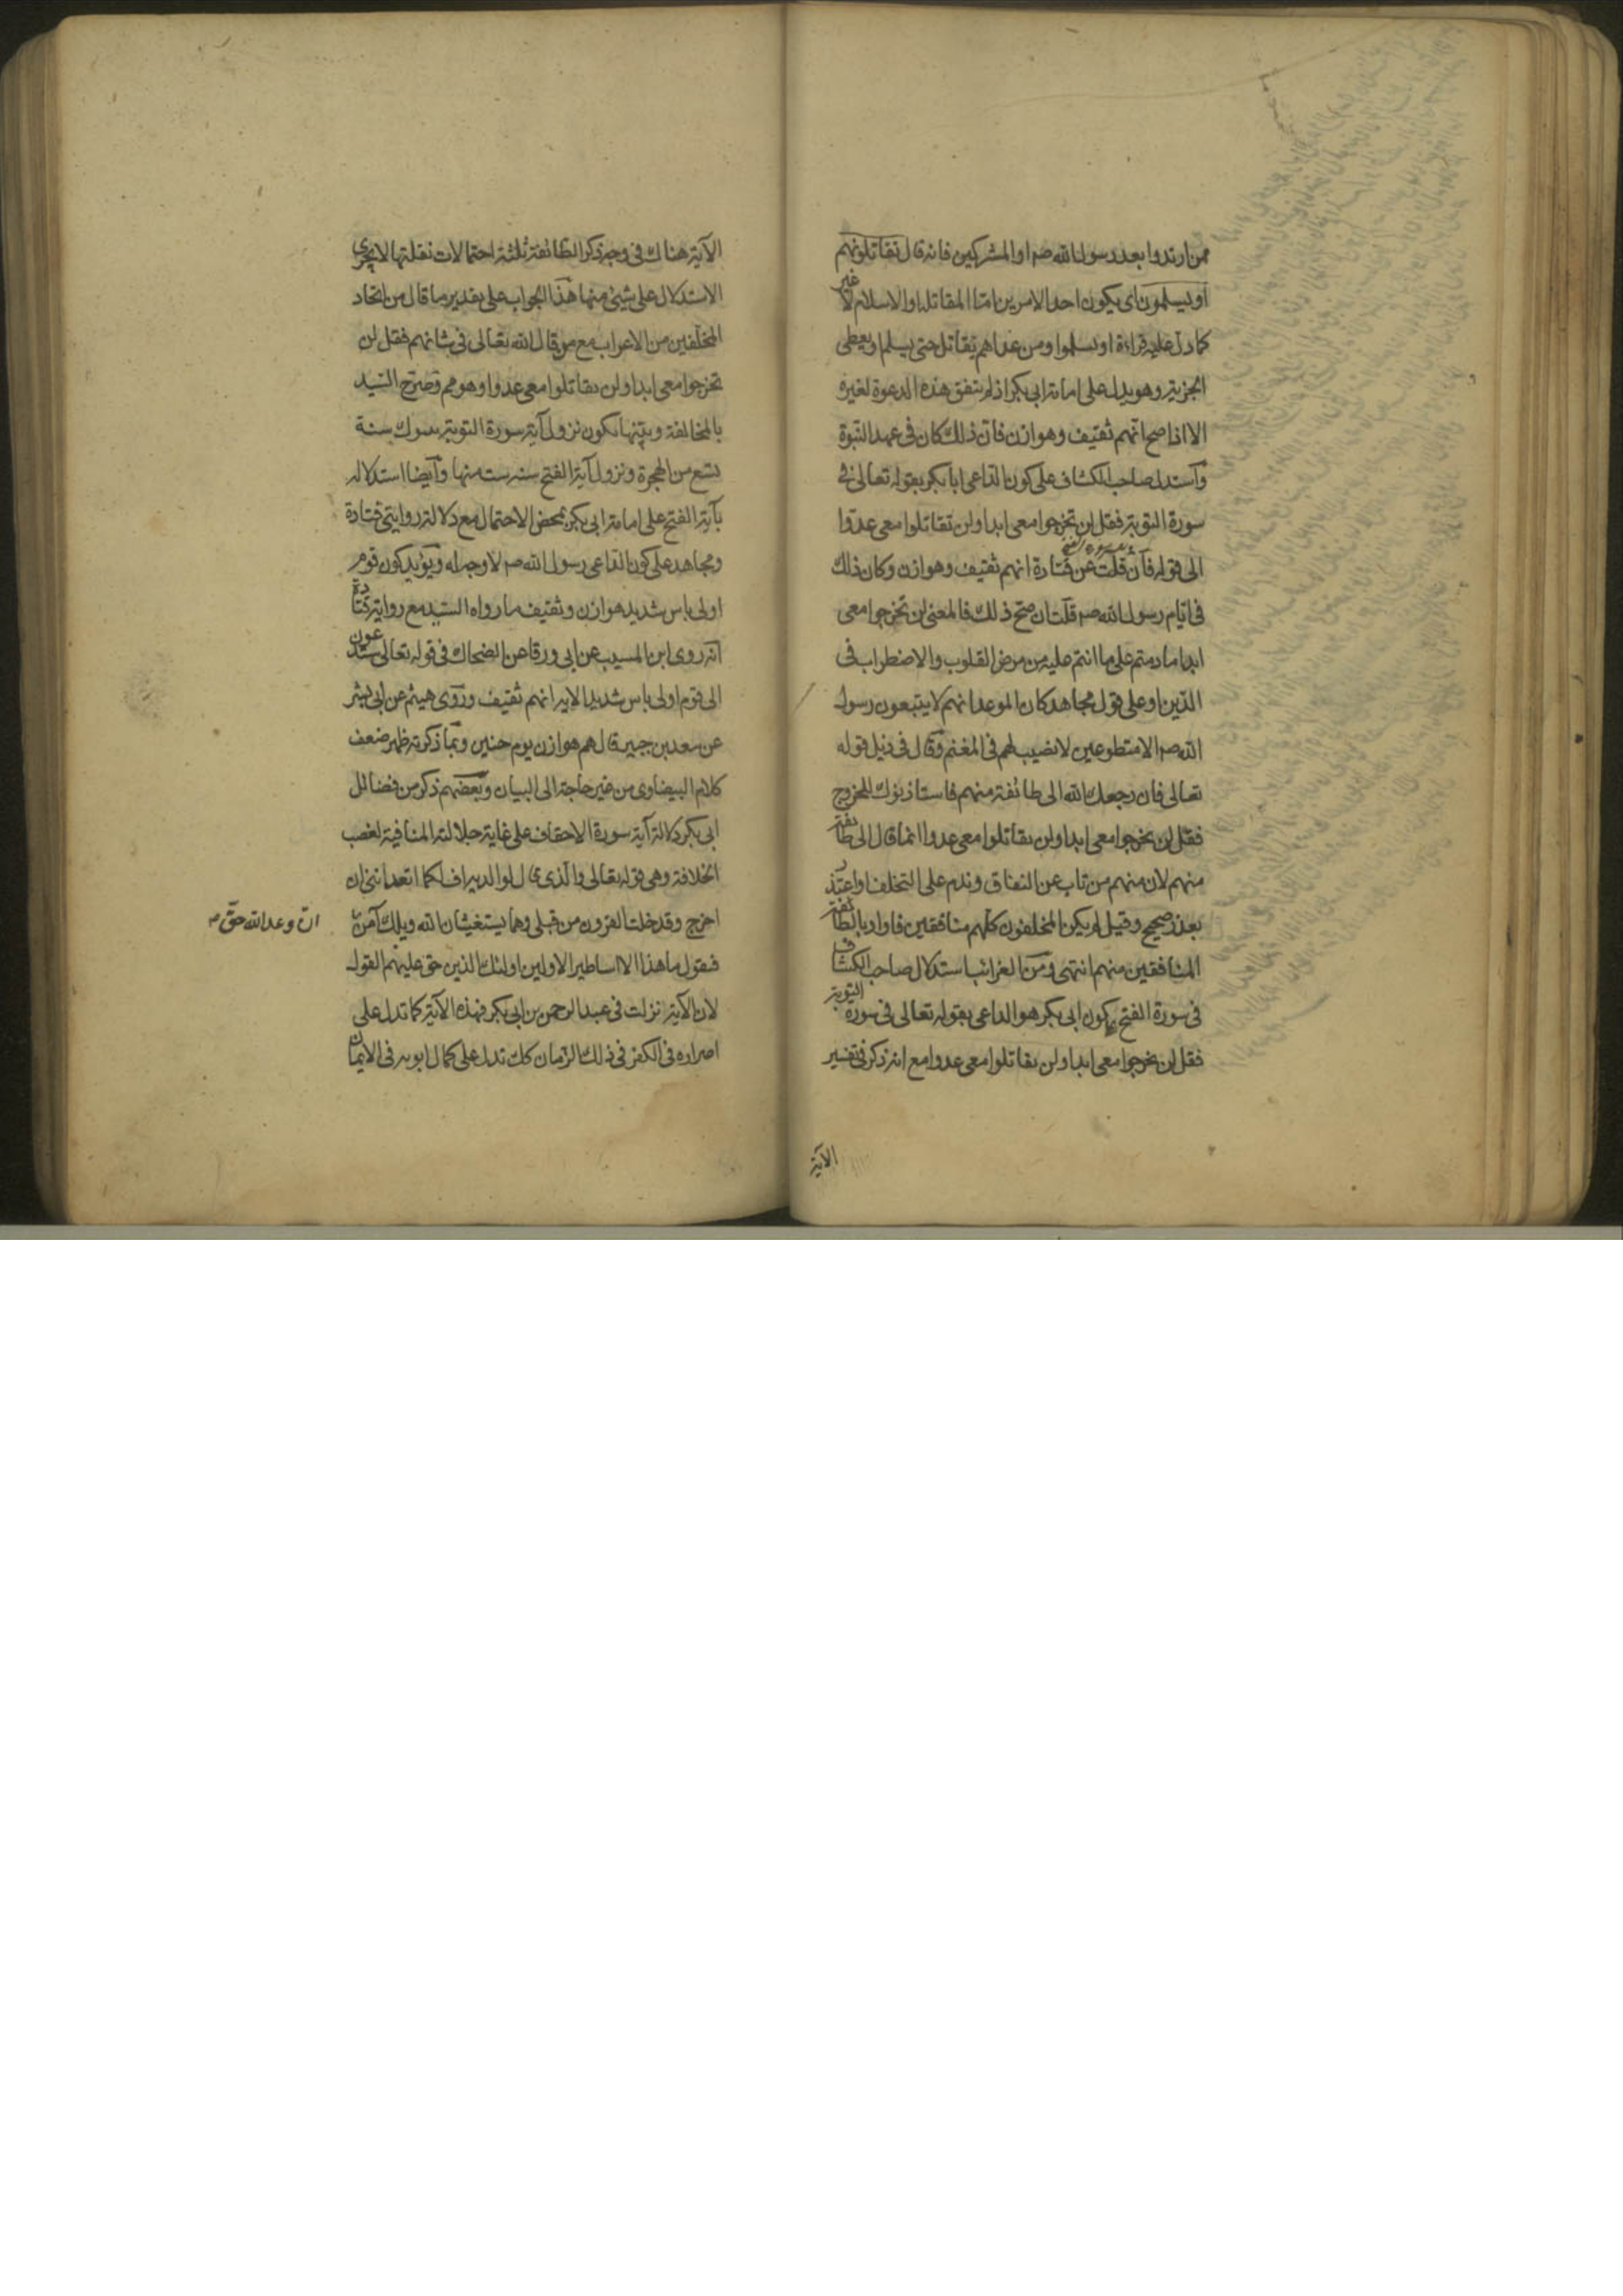 ممن ارتدوا بعد رسول الله صم او المشركين فانه قال تقاتلونهم
او يسلمون اى يكون احد الامرين امّا المقاتلة او الاسلام لا غير
كما دل عليه قراءة او يسلموا ومن عداهم يقاتل حتى يسلم او يعطى
الجزية وهو يدل على امامة ابى بكر اذ لم يتفق هذه الدعوة لغيره
الا اذا صح انهم ثقيف وهوازن فانّ ذلك كان فى عهد النبوة
وآستدل صاحب الكشاف على كون الداعى ابا بكر بقوله تعالى فى
سورة التوبة فقل لن تخرجوا معى ابدا ولن تقاتلوا معى عدوّا
الى قوله فآن قلت عن قتادة انهم ثقيف وهوازن وكان ذلك
فى ايّام رسول الله صم قلت ان صحّ ذلك فالمعنى لن تخرجوا معى
ابدا ما دمتم على ما انتم عليه من مرض القلوب والاضطراب فى
الدّين او على قول مجاهد كان الموعد انهم لا يتبعون رسول
الله صم الا متطوعين لا نصيب لهم فى المغنم وقال فى ذيل قوله
تعالى فان رجعك الله الى طائفة منهم فاستاذنوك للخروج
فقل لن تخرجوا معى ابدا ولن تقاتلوا معى عدوا انما قال الى طائفة
منهم لان منهم من تاب عن النفاق وندم على التخلف او اعتذر
بعذر صحيح وقيل لم يكن المخلفون كلّهم منافقين فاراد بالطائفة
المنافقين منهم انتهى ومن الغرائب استدلال صاحب الكشاف
فى سورة الفتح بكون ابى بكر هو الداعى بقوله تعالى فى سورة التوبة
فقل لن تخرجوا معى ابدا ولن تقاتلوا معى عدوا مع انه ذكر فى تفسير
الآية
الآية هناك فى وجه ذكر الطائفة ثلثة احتمالات نقلتها لا يجرى
الاستدلال على شيئ منها هذا الجواب على تقدير ما قال من اتحاد
المخلفين من الاعراب مع من قال الله تعالى فى شانهم فقل لن
تخرجوا معى ابدا ولن تقاتلوا معى عدوا وهو مم وصرّح السّيد
بالمخالفة وبيّنها بكون نزول آية سورة التوبة بتبوك سنة
تسع من الهجرة ونزول آية الفتح سنه ست منها وآيضا استدلاله
بآية الفتح على امامة ابى بكر بمحض الاحتمال مع دلالة روايتى قتادة
ومجاهد على كون الداعى رسول الله صم لا وجه له ويؤيد كون قوم
اولى باس شديد هوازن وثقيف ما رواه السّيد مع رواية قتادة
انّه روى ابن المسيب عن ابى ورقا عن الضحاك فى قوله تعالى ستدعون
الى قوم اولى باس شديد الاية انهم ثقيف وروى هيثم عن ابى بشر
عن سعد بن جبير قال هم هوازن يوم حنين وبما ذكرته ظهر ضعف
كلام البيضاوى من غير حاجة الى البيان وبعضهم ذكر من فضائل
ابى بكر دلالة آية سورة الاحقاف على غاية جلالته المنافية لغصب
الخلافة وهى قوله تعالى والّذى قال لوالديه اف لكما اتعداننى ان
اخرج وقد خلت القرون من قبلى وهما يستغيثان الله ويلك آمن
انّ وعد الله حقّ
فيقول ما هذا الا اساطير الاولين اولئك الذين حق عليهم القول
لان الآية نزلت فى عبد الرحمن بن ابى بكر فهذه الآية كما تدل على
اصراره فى الكفر فى ذلك الزمان كك تدل على كمال ابويه فى الايمان